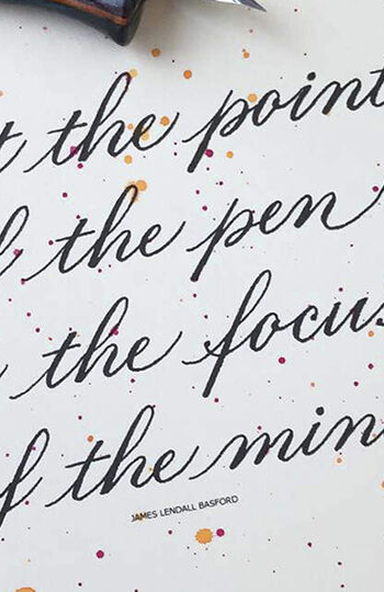 t the point
f the pen
the focus
f the min
JAMES LENDALL BASFORD